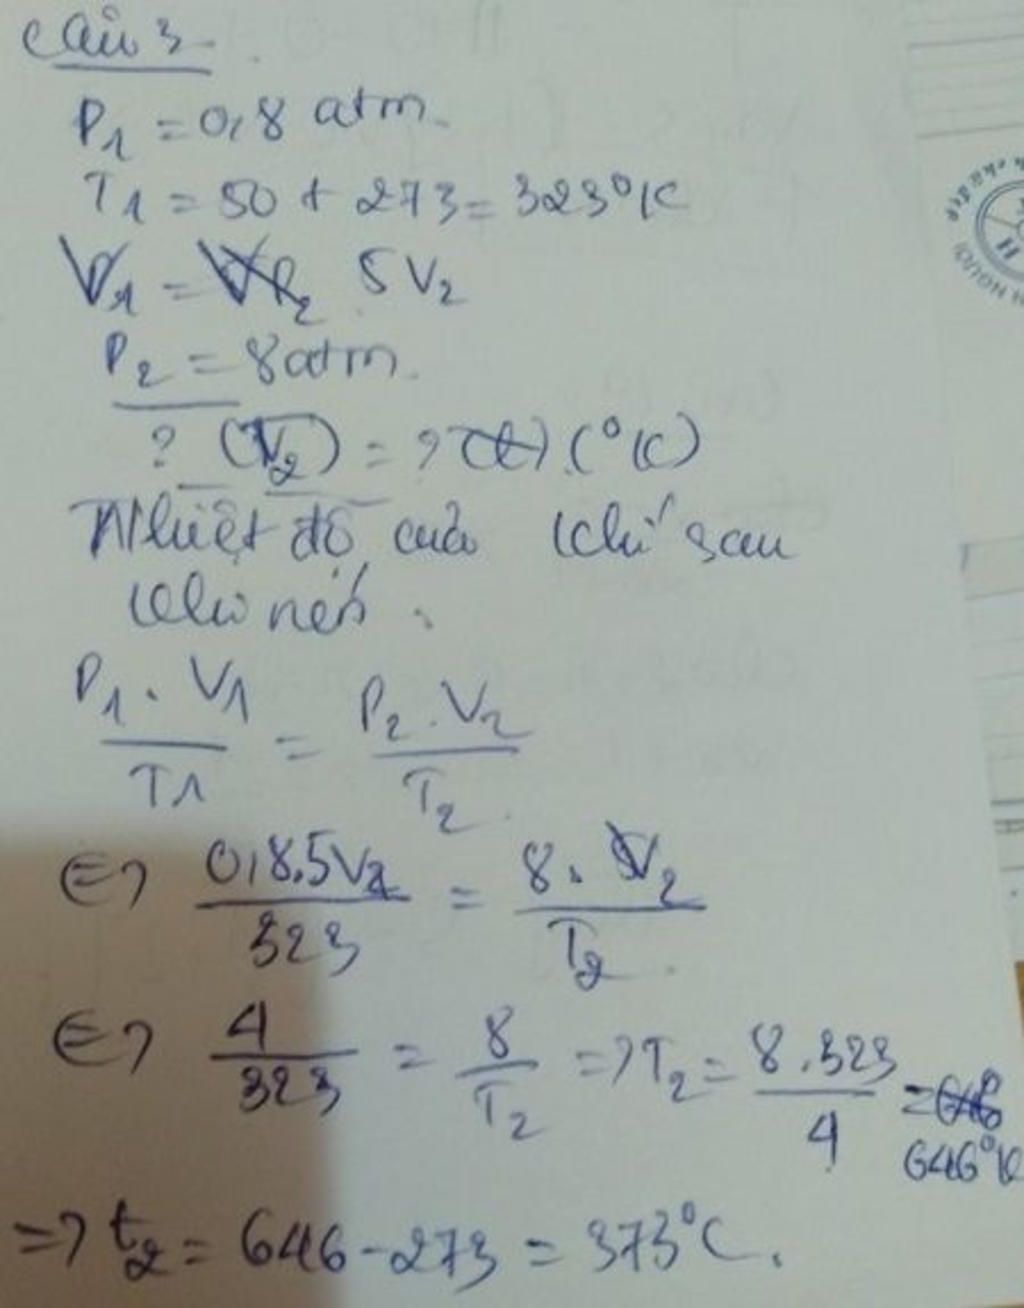 Câu 3
P1 = 0,8 atm.
T1 = 50 + 273 = 323°K
V1 = 5V2
P2 = 8 atm.
? (T2) = ? (°K)
Nhiệt độ của khí sau
khi nén.
P1 . V1 / T1 = P2 . V2 / T2
<=> 0,8.5V2 / 323 = 8. V2 / T2
<=> 4 / 323 = 8 / T2 => T2 = 8.323 / 4 = 646°K
=> t2 = 646 - 273 = 373°C.